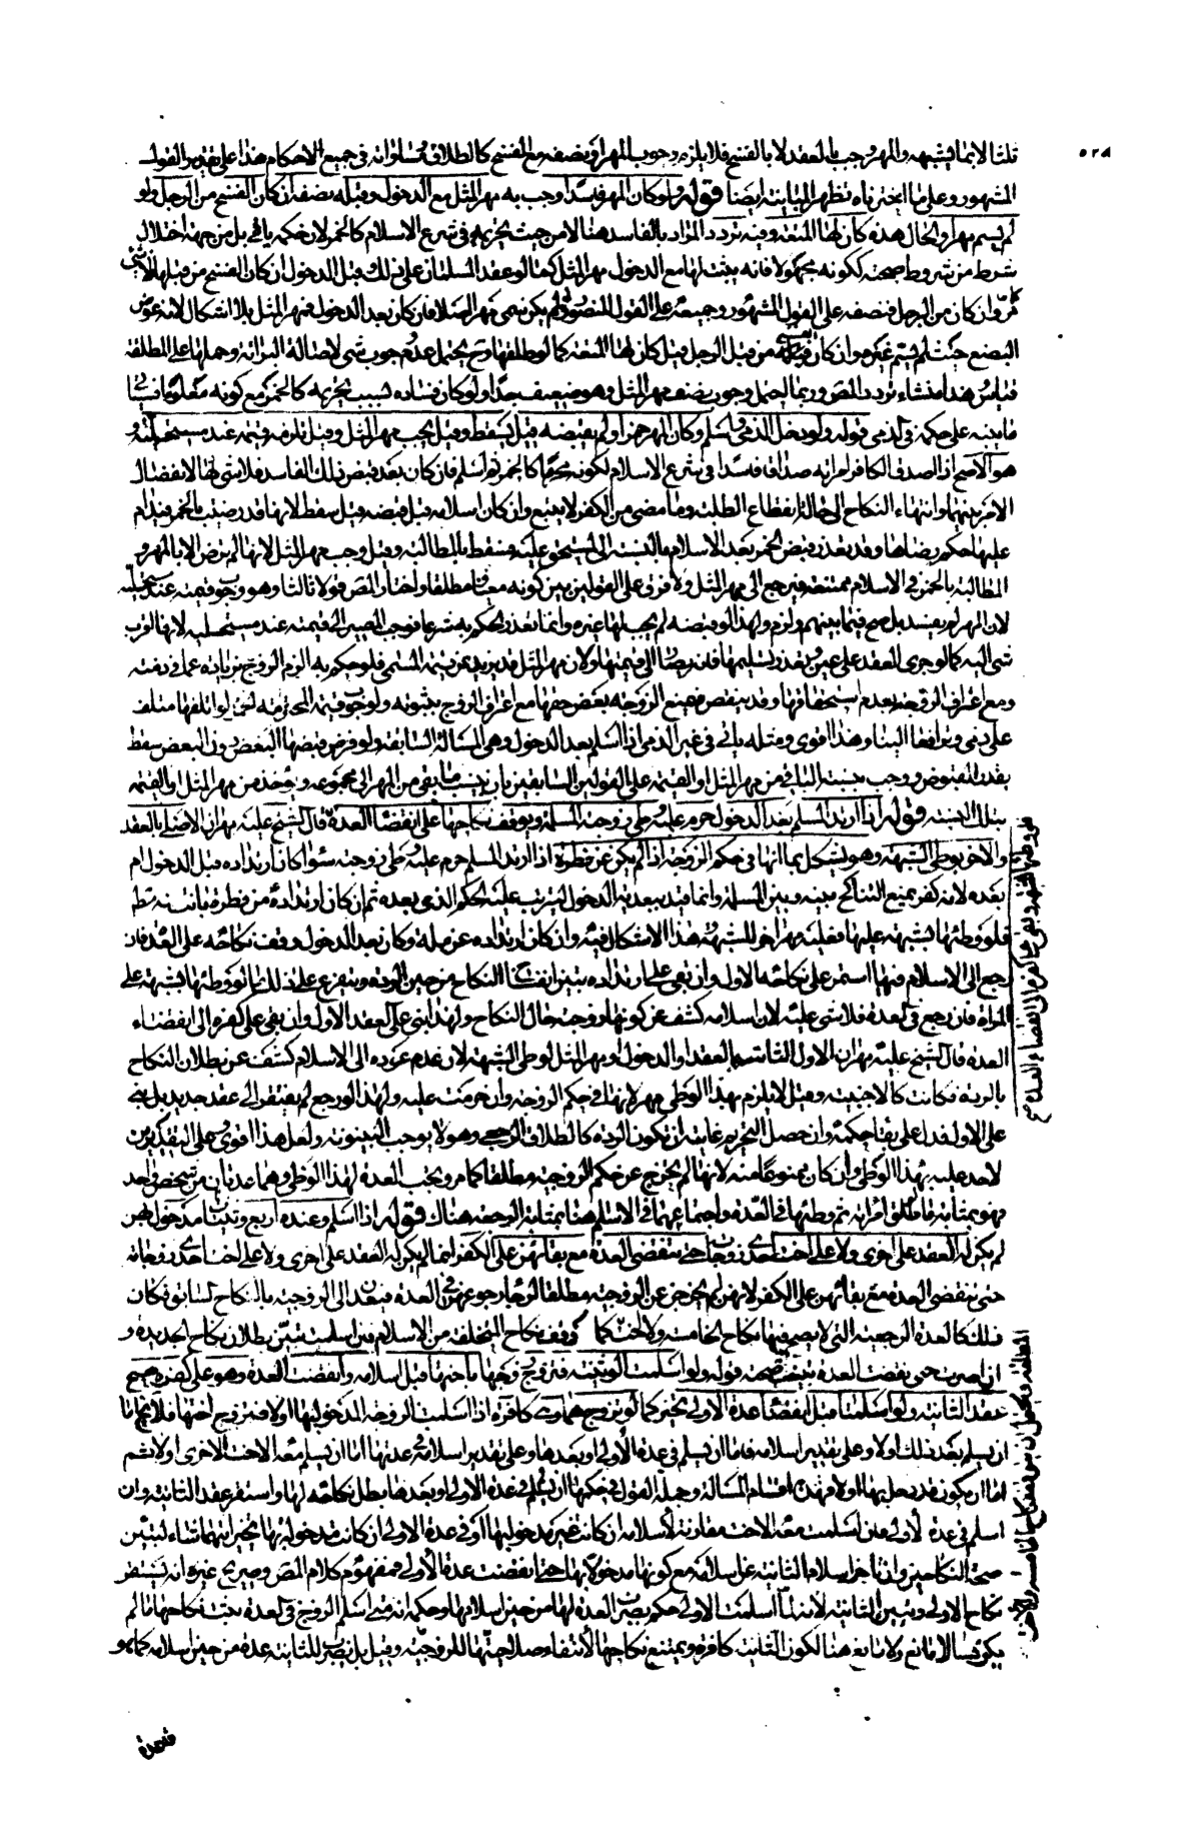 ٥٢٨
قلنا لا انما يشبهه والمهر وجب بالعقد لا بالفسخ فلا يلزم وجوب المهر او نصفه مع الفسخ كالطلاق مساواته في جميع الاحكام هذا على تقدير القول
المشهور وعلى ما اخترناه تظهر المباينة ايضا قوله ولو كان المهر فاسدا وجب به مهر المثل مع الدخول وقبله نصفه ان كان الفسخ من الرجل ولو
لم يسم مهرا والحال هذه كان لها المتعة وفيه تردد المراد بالفاسد هنا الا من حيث تحريمه في شرع الاسلام كالخمر لان حكمه ياتي بل من جهة اختلال
شرط من شروط صحته ككونه مجهولا فانه يثبت لها مع الدخول مهر المثل كما لو عقد المسلمان على ذلك وقبل الدخول ان كان الفسخ من قبلها لا شئ
كما مر وان كان من الرجل فنصفه على القول المشهور وجميعه على القول المنصور ولو لم يكن سمى مهرا اصلا فان كان بعد الدخول فمهر المثل بلا اشكال لانه عوض
البضع حيث لم يسم غيره وان كان قبله من قبل الرجل قيل كان لها المتعة كما لو طلقها وح يحتمل عدم وجوب شئ لاصالة البرائة وحملها على المطلقة
قياس هذا منشاء تردد المص وربما احتمل وجوب نصف مهر المثل وهو ضعيف جدا ولو كان فساده لسبب تحريمه كالخمر مع كونه معلوما فسياتي
ما ينبه على حكمه في الذمي قوله ولو دخل الذمي واسلم وكان المهر خمرا ولم يقبضه قيل يسقط وقيل يجب مهر المثل وقيل يلزمه قيمته عند مستحليه و
هو الاصح اذا اصدق الكافر امراته صداقا فاسدا في شرع الاسلام لكونه محرما كالخمر ثم اسلم فان كان بعد قبض ذلك الفاسد فلا شئ لها لانفصال
الامر بينهما وانتهاء النكاح الى حالة انقطاع الطلبة وما مضى من الكفر لا يتبع وان كان اسلامه قبل قبضه قيل سقط لانها قد رضيت بالخمر فيدام
عليها حكم رضاها وقد تعذر قبض الخمر بعد الاسلام بالنسبة الى المستحق عليه فسقط بالمطالبة وقيل وجب مهر المثل لانها لم ترض الا بالمهر و
المطالبة بالخمر في الاسلام ممتنعة فيرجع الى مهر المثل ولا فرق على القولين بين كونه معينا ومطلقا واختار المص قولا ثالثا وهو وجوب قيمته عند مستحليه
لان المهر لم يفسد بل صح فيما بينهم ولزم ولهذا لو قبضته لم يجب لها غيره وانما تعذر الحكم به شرعا فوجب المصير الى قيمته عند مستحليه لانها اقرب
شئ اليه كما لو جرى العقد على عين وتعذر تسليمها فانه يصار الى قيمتها ولان مهر المثل قد يزيد عن قيمة المسمى فلو حكم به الزم الزوج بزيادة عما في ذمته
ومع اعتراف الزوجة بعدم استحقاقها وقد ينقص فيمنع الزوجة بعض حقها مع اعتراف الزوج بثبوته ولوجوب قيمة المحرمه لو اتلفها متلف
على ذمي وترافعا الينا وهذا اقوى ومثله ياتي في غير الذمي اذا اسلم بعد الدخول وهي المسالة السابقة ولو فرض قبضها البعض دون البعض سقط
بقدر المقبوض ووجب بنسبة الباقي من مهر المثل او القيمة على القولين السابقين بان ينسب ما بقي من المهر الى مجموعه ويؤخذ من مهر المثل او القيمة
بتلك النسبة قوله اذا ارتد المسلم بعد الدخول حرم عليه وطى زوجته المسلمة ويوقف نكاحها على انقضاء العدة قال الشيخ عليه مهران الاصلي بالعقد
والاخر بوطى الشبهة وهو يشكل بما انها في حكم الزوجة اذا لم يكن عن فطرة اذا ارتد المسلم حرم عليه وطى زوجته سواء كان ارتداده قبل الدخول ام
بعده لانه كفر يمنع التناكح بينه وبين المسلمة وانما قيد ببعدية الدخول ليترتب عليه الحكم الذي بعده ثم ان كان ارتداده من فطرة بانت منه
فلو وطئها بشبهة عليها فعليه مهر اخر للشبهة هذا لا اشكال فيه وان كان ارتداده عن ملة وكان بعد الدخول وقف نكاحه على العدة فان
رجع الى الاسلام فيها استمر على نكاحه الاول وان بقي على ارتداده تبين انفساخ النكاح من حين الردة ويتفرع على ذلك ما لو وطئها بشبهة على
المراة فان رجع في العدة فلا شئ عليه لان اسلامه كشف عن كونها زوجته حال النكاح ولهذا بنى على العقد الاول وان بقي على كفره الى انقضاء
العدة قال الشيخ عليه مهران الاول الثابت بالعقد او الدخول ومهر المثل لوطى الشبهة لان عدم عوده الى الاسلام كشف عن بطلان النكاح
بالردة فكانت كالاجنبية وقيل لا يلزم بهذا الوطى مهر لانها في حكم الزوجة وان حرمت عليه ولهذا لو رجع لم يفتقر الى عقد جديد بل يبنى
على الاول فدل على بقاء حكمه وان حصل التحريم غايته ان تكون الردة كالطلاق الرجعي وهو لا يوجب البينونة ولعل هذا اقوى وعلى التقديرين
لا حد عليه بهذا الوطى وان كان ممنوعا منه لانها لم تخرج عن حكم الزوجية مطلقا كما مر وتجب العدة لهذا الوطى وهما عدتان من شخص واحد
فهو بمثابة ما لو طلق امراته ثم وطئها في العدة واجتماعهما في الاسلام هنا بمثابة الرجعة هناك قوله اذا اسلم وعنده اربع وثنيات مدخول بهن
لم يكن له العقد على اخرى ولا على اخت احدى زوجاته حتى تنقضي العدة مع بقائهن على الكفر انما لم يكن له العقد على اخرى ولا على اخت احدى زوجاته
حتى تنقضي العدة مع بقائهن على الكفر لانهن لم يخرجن عن الزوجية مطلقا لرجاء رجوعهن في العدة فيعدن الى الزوجية بالنكاح السابق فكان
ذلك كالعدة الرجعية التي لا يصح فيها نكاح الخامسة ولا الاخت كما وقف نكاح المتخلفة من الاسلام فان اسلمت تبين بطلان نكاح الجديدة و
ان اصرت حتى نقضت العدة تبينت صحته قوله ولو اسلمت الوثنية فتزوج زوجها باختها قبل اسلامه وانقضت العدة وهو على كفره صح
عقد الثانية ولو اسلما قبل انقضاء عدة الاولى تخير كما لو تزوجهما وهي كافرة اذا اسلمت الزوجة المدخول بها اولا فتزوج اختها فلا يخ اما
ان يسلم بعد ذلك اولا وعلى تقدير اسلامه فاما ان يسلم في عدة الاولى او بعدها وعلى تقدير اسلامه في عدتها اما ان يسلم معه الاخت الاخرى اولا ثم
اما ان يكون قد دخل بها اولا فهذه اقسام المسالة وجملة القول في حكمها ان لم يسلم في عدة الاولى او بعدها بطل نكاحه لها واستقر عقد الثانية وان
اسلم في عدة الاولى فان اسلمت معه الاخت مقارنة لاسلامه ان كانت غير مدخول بها او في عدة الاولى ان كانت مدخولا بها تخير ايتهما شاء لتبين
صحة النكاحين وان تاخر اسلام الثانية عن اسلامه مع كونها مدخولا بها حتى انقضت عدة الاولى فمفهوم كلام المص وصريح غيره انه يستقر
نكاح الاولى وتبين الثانية لانه لما اسلمت الاولى حكم بضرب العدة لها من حين اسلامها وحكمه انه متى اسلم الزوج في العدة يثبت نكاحها ما لم
يكن هناك مانع ولا مانع هنا لكون الثانية كافرة ويمتنع نكاحها لانتفاء صلاحيتها للزوجية وقيل بل يضرب للثانية عدة من حين اسلامه كما هو
قتعدة